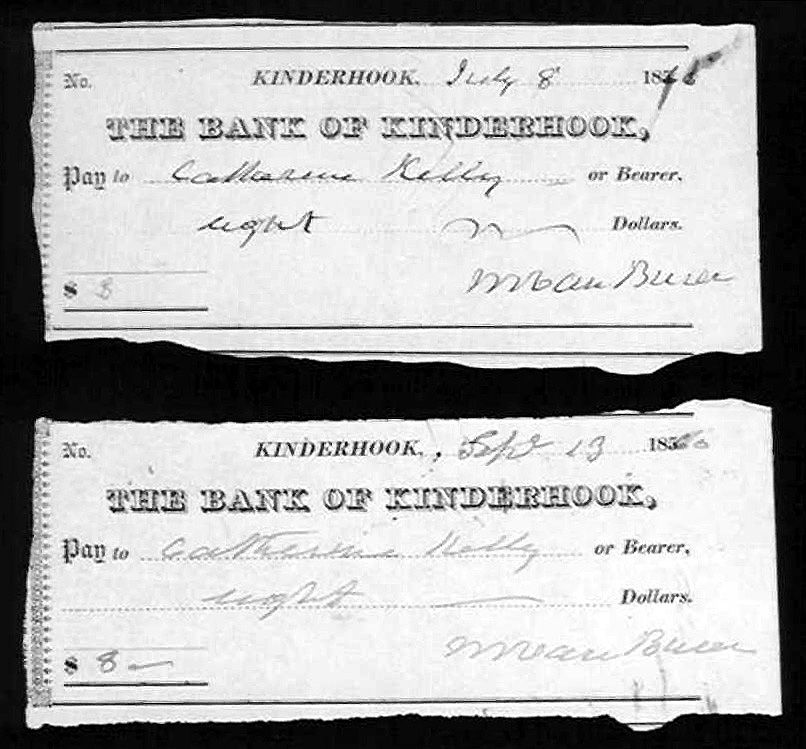 No. KINDERHOOK, July 8 18
THE BANK OF KINDERHOOK,
Pay to Catherine Kelly or Bearer,
eight Dollars.
$ 8
M Van Buren
No. KINDERHOOK, Sept 13 18
THE BANK OF KINDERHOOK,
Pay to Catherine Kelly or Bearer,
eight Dollars.
$ 8 —
M Van Buren